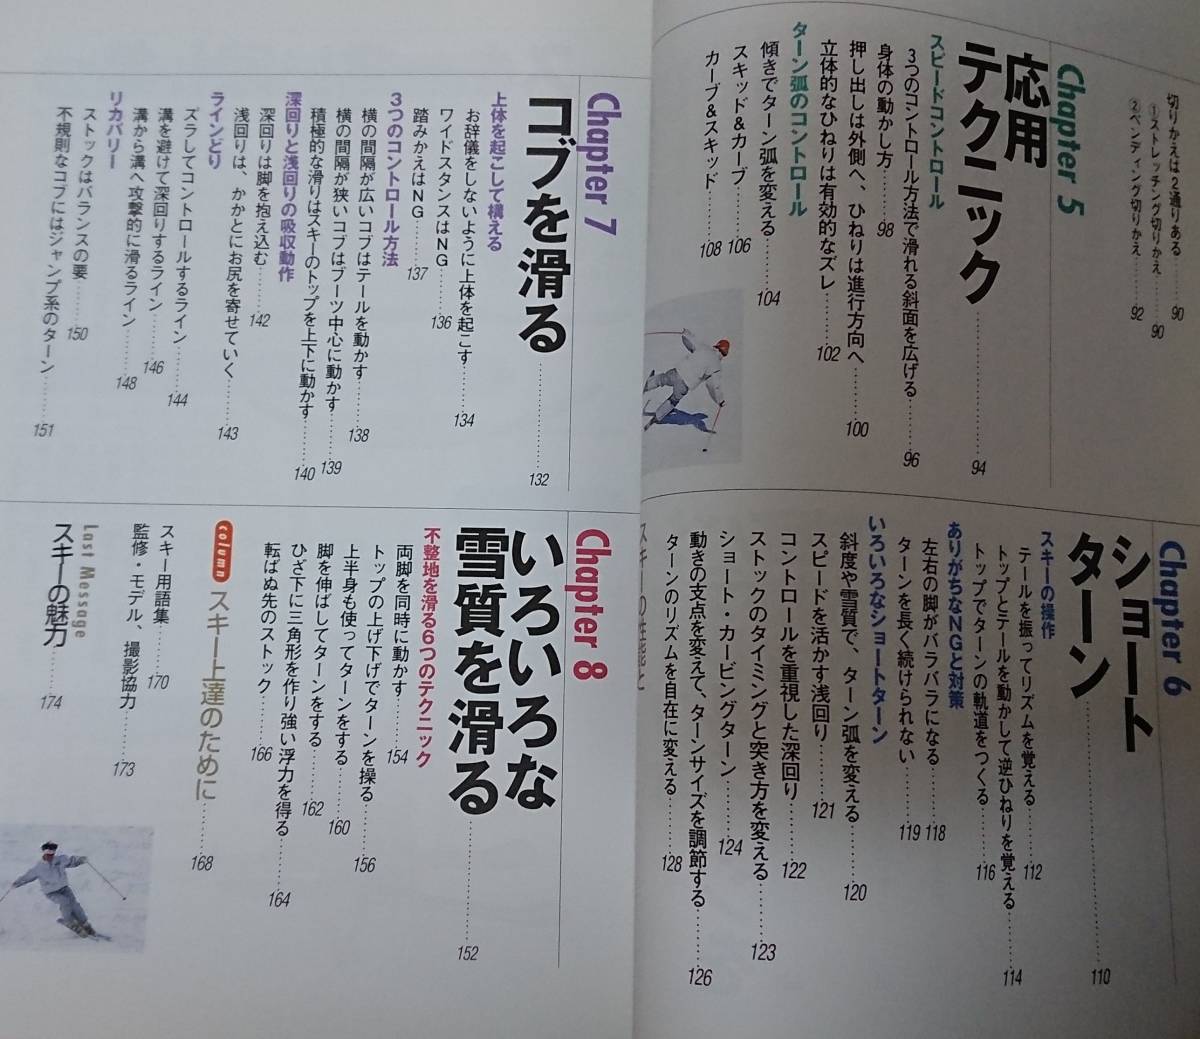 切りかえは2通りある……90
①ストレッチング切りかえ……90
②ベンディング切りかえ……92
Chapter 5
応用
テクニック……94
スピードコントロール
3つのコントロール方法で滑れる斜面を広げる……96
身体の動かし方……98
押し出しは外側へ、ひねりは進行方向へ……100
立体的なひねりは有効的なズレ……102
ターン弧のコントロール
傾きでターン弧を変える……104
スキッド&カーブ……106
カーブ&スキッド……108
Chapter 6
ショート
ターン……110
スキーの操作
テールを振ってリズムを覚える……112
トップとテールを動かして逆ひねりを覚える……114
トップでターンの軌道をつくる……116
ありがちなNGと対策
左右の脚がバラバラになる……118
ターンを長く続けられない……119
いろいろなショートターン
斜度や雪質で、ターン弧を変える……120
スピードを活かす浅回り……121
コントロールを重視した深回り……122
ストックのタイミングと突き方を変える……123
ショート・カービングターン……124
動きの支点を変えて、ターンサイズを調節する……126
ターンのリズムを自在に変える……128
Chapter 7
コブを滑る……132
上体を起こして構える
お辞儀をしないように上体を起こす……134
ワイドスタンスはNG……136
踏みかえはNG……137
3つのコントロール方法
横の間隔が広いコブはテールを動かす……138
横の間隔が狭いコブはブーツ中心に動かす……139
積極的な滑りはスキーのトップを上下に動かす……140
深回りと浅回りの吸収動作
深回りは脚を抱え込む……142
浅回りは、かかとにお尻を寄せていく……143
ラインどり
ズラしてコントロールするライン……144
溝を避けて深回りするライン……146
溝から溝へ攻撃的に滑るライン……148
リカバリー
ストックはバランスの要……150
不規則なコブにはジャンプ系のターン……151
Chapter 8
いろいろな
雪質を滑る……152
不整地を滑る6つのテクニック
両脚を同時に動かす……154
トップの上げ下げでターンを操る……156
上半身も使ってターンをする……160
脚を伸ばしてターンをする……162
ひざ下に三角形を作り強い浮力を得る……164
転ばぬ先のストック……166
column スキー上達のために……168
スキー用語集……170
監修・モデル、撮影協力……173
Last Message
スキーの魅力……174